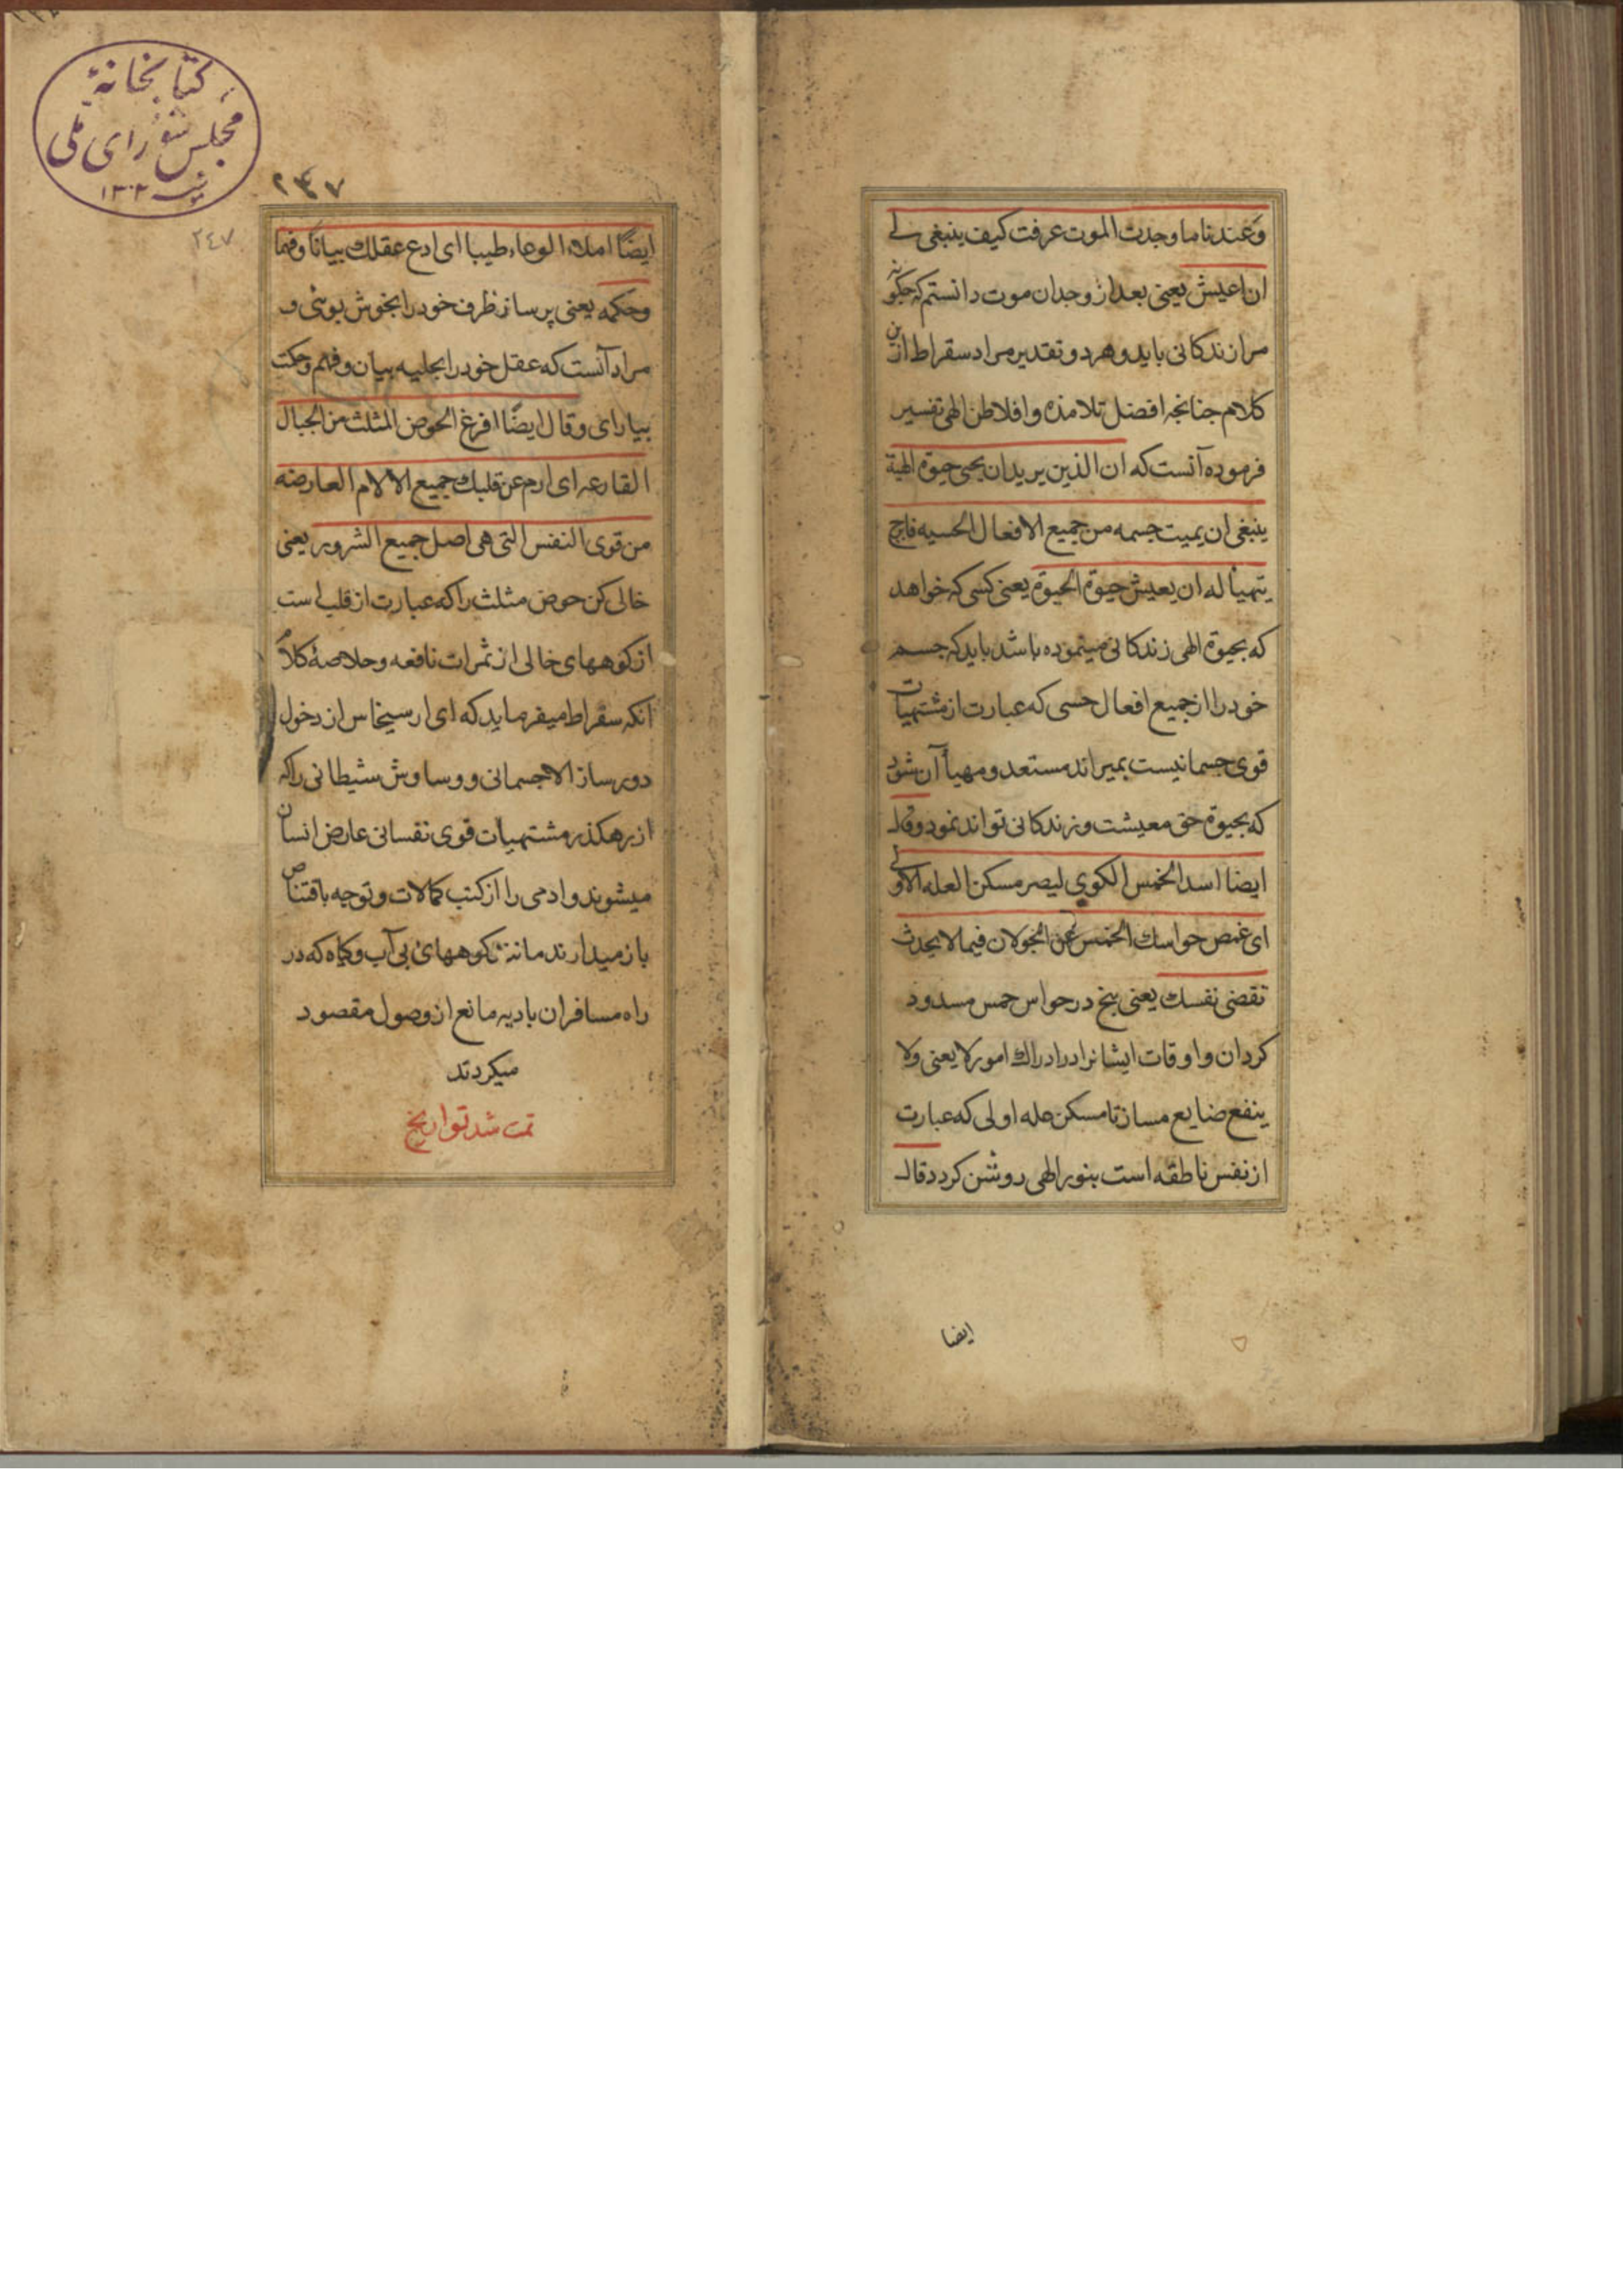 وعندنا ما وجدت الموت عرفت كيف ينبغي لے
ان اعيش يعنى بعد از وجدان موت دانستم كه چكونه
مرا زندكانى بايد و هر دو تقدير مراد سقراط ازين
كلام چنانچه افضل تلامذه و افلاطن الهى تفسير
فرموده آنست كه ان الذين يريد ان يحيى حيوة الهية
ينبغى ان يميت جسمه من جميع الافعال الحسيه
يتهيأ له ان يعيش حيوة الحيوة يعنى كسى كه خواهد
كه بحيوة الهى زندكانى مينموده باشد بايد كه جسم
خود را از جميع افعال حسى كه عبارت از مشتهيات
قوى جسمانيست بميراند مستعد و مهيأ آن شود
كه بحيوة حق معيشت و زندكانى تواند نمود و قال
ايضا اسد الخمس الكوى ليصر مسكن العله الاولى
اى غمص حواسك الخمس عن الجولان فيما لا يحدث
تقضى نفسك يعنى پنج در حواس خمس مسدود
كردان و اوقات ايشانرا در ادراك امور لا يعنى ولا
ينفع ضايع مساز تا مسكن عله اولى كه عبارت
از نفس ناطقه است بنور الهى روشن كردد قال
ايضا
كتابخانهٔ
مجلس شوراى ملى
١٣٠٢
٢٤٧
٢٤٧
ايضًا املا الوعاء طيبا اى ادع عقلك بيانًا و فهما
وحكمه يعنى پر ساز ظرف خود را بخوش بوئى و
مراد آنست كه عقل خود را بحليه بيان و فهم و حكمت
بياراى و قال ايضًا افرغ الحوض المثلث من الجبال
القارعه اى ارم عن قلبك جميع الالام العارضه
من قوى النفس التى هى اصل جميع الشرور يعنى
خالى كن حوض مثلث را كه عبارت از قلب است
از كوههاى خالى از ثمرات نافعه و خلاصهٔ كلام
آنكه سقراط ميفرمايد كه اى ارسيخاس از دخول
دور ساز الاجسمانى و وساوش شيطانى را كه
از رهكذر مشتهيات قوى نفسانى عارض انسان
ميشوند و ادمى را از كتب كمالات و توجه باقتناص
باز ميدارند مانند كوههاى بى آب و كياه كه در
راه مسافران باديه مانع از وصول مقصود
ميكردند
تمت شد تواريخ